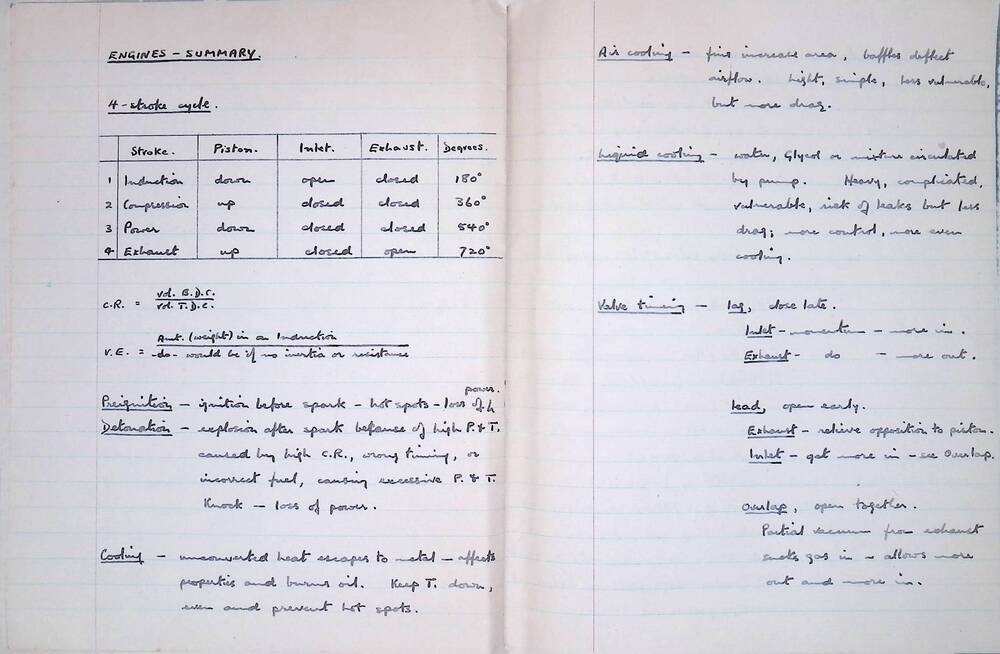 ENGINES – SUMMARY.
4-stroke cycle.
Stroke. Piston. Inlet. Exhaust. Degrees.
1 Induction down open closed 180°
2 Compression up closed closed 360°
3 Power down closed closed 540°
4 Exhaust up closed open 720°
C.R. = vol. B.D.C.
vol. T.D.C.
Amt. (weight) in on Induction
V.E. = -do- would be if no inertia or resistance
power.
Preignition – ignition before spark – hot spots – loss of
Detonation – explosion after spark because of high P. & T.
caused by high C.R., wrong timing, or
incorrect fuel, causing excessive P. & T.
Knock – loss of power.
Cooling – unconverted heat escapes to metal – affects
properties and burns oil. Keep T. down,
even and prevent hot spots.
Air cooling – fins increase area, baffles deflect
airflow. Light, simple, less vulnerable,
but more drag.
Liquid cooling – water, Glycol or mixture circulated
by pump. Heavy, complicated,
vulnerable, risk of leaks but less
drag; more control, more even
cooling.
Valve timing – lag, close late.
Inlet – momentum – more in.
Exhaust – do – more out.
Lead, open early.
Exhaust – relieve opposition to piston.
Inlet – get more in – see Overlap.
Overlap, open together.
Partial vacuum from exhaust
sucks gas in – allows more
out and more in.